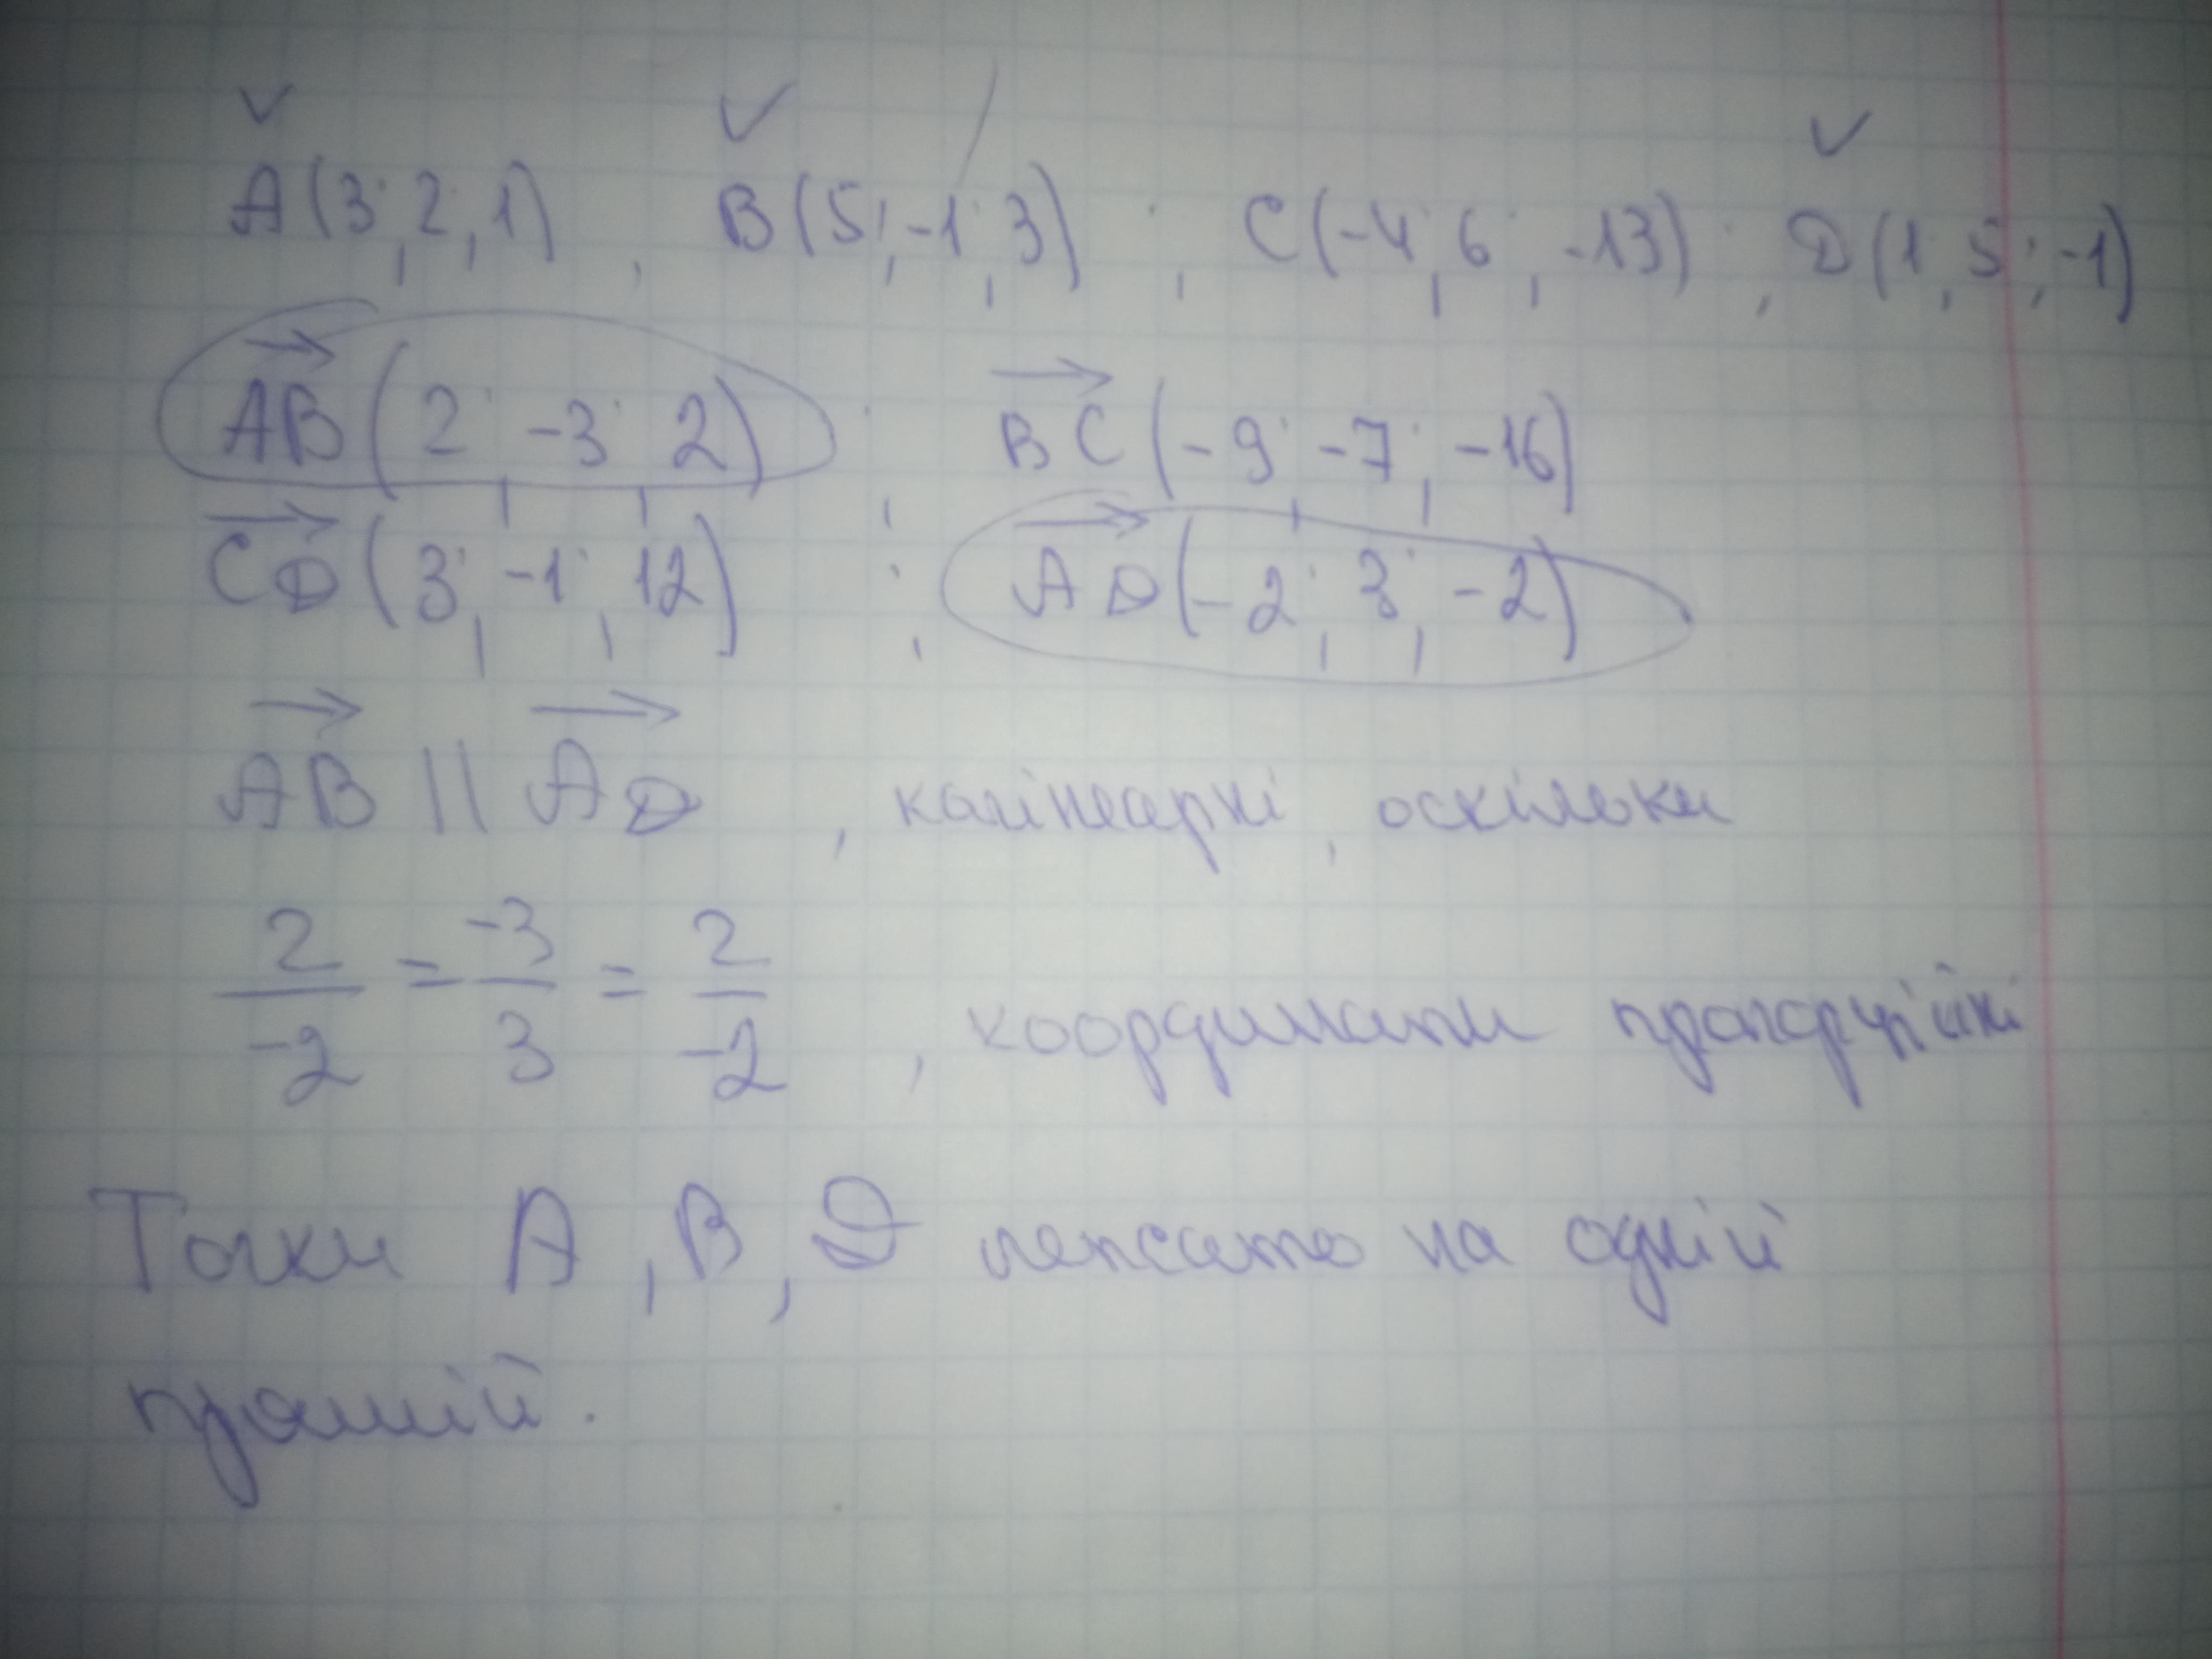 A(3; 2; 1) ; B(5; -1; 3) ; C(-4; 6; -13) ; D(1; 5; -1)
AB(2; -3; 2) ; BC(-9; -7; -16)
CD(3; -1; 12) ; AD(-2; 3; -2)
AB || AD , колінеарні, оскільки
2/-2 = -3/3 = 2/-2 , координати пропорційні
Точки A, B, D лежать на одній
прямій.